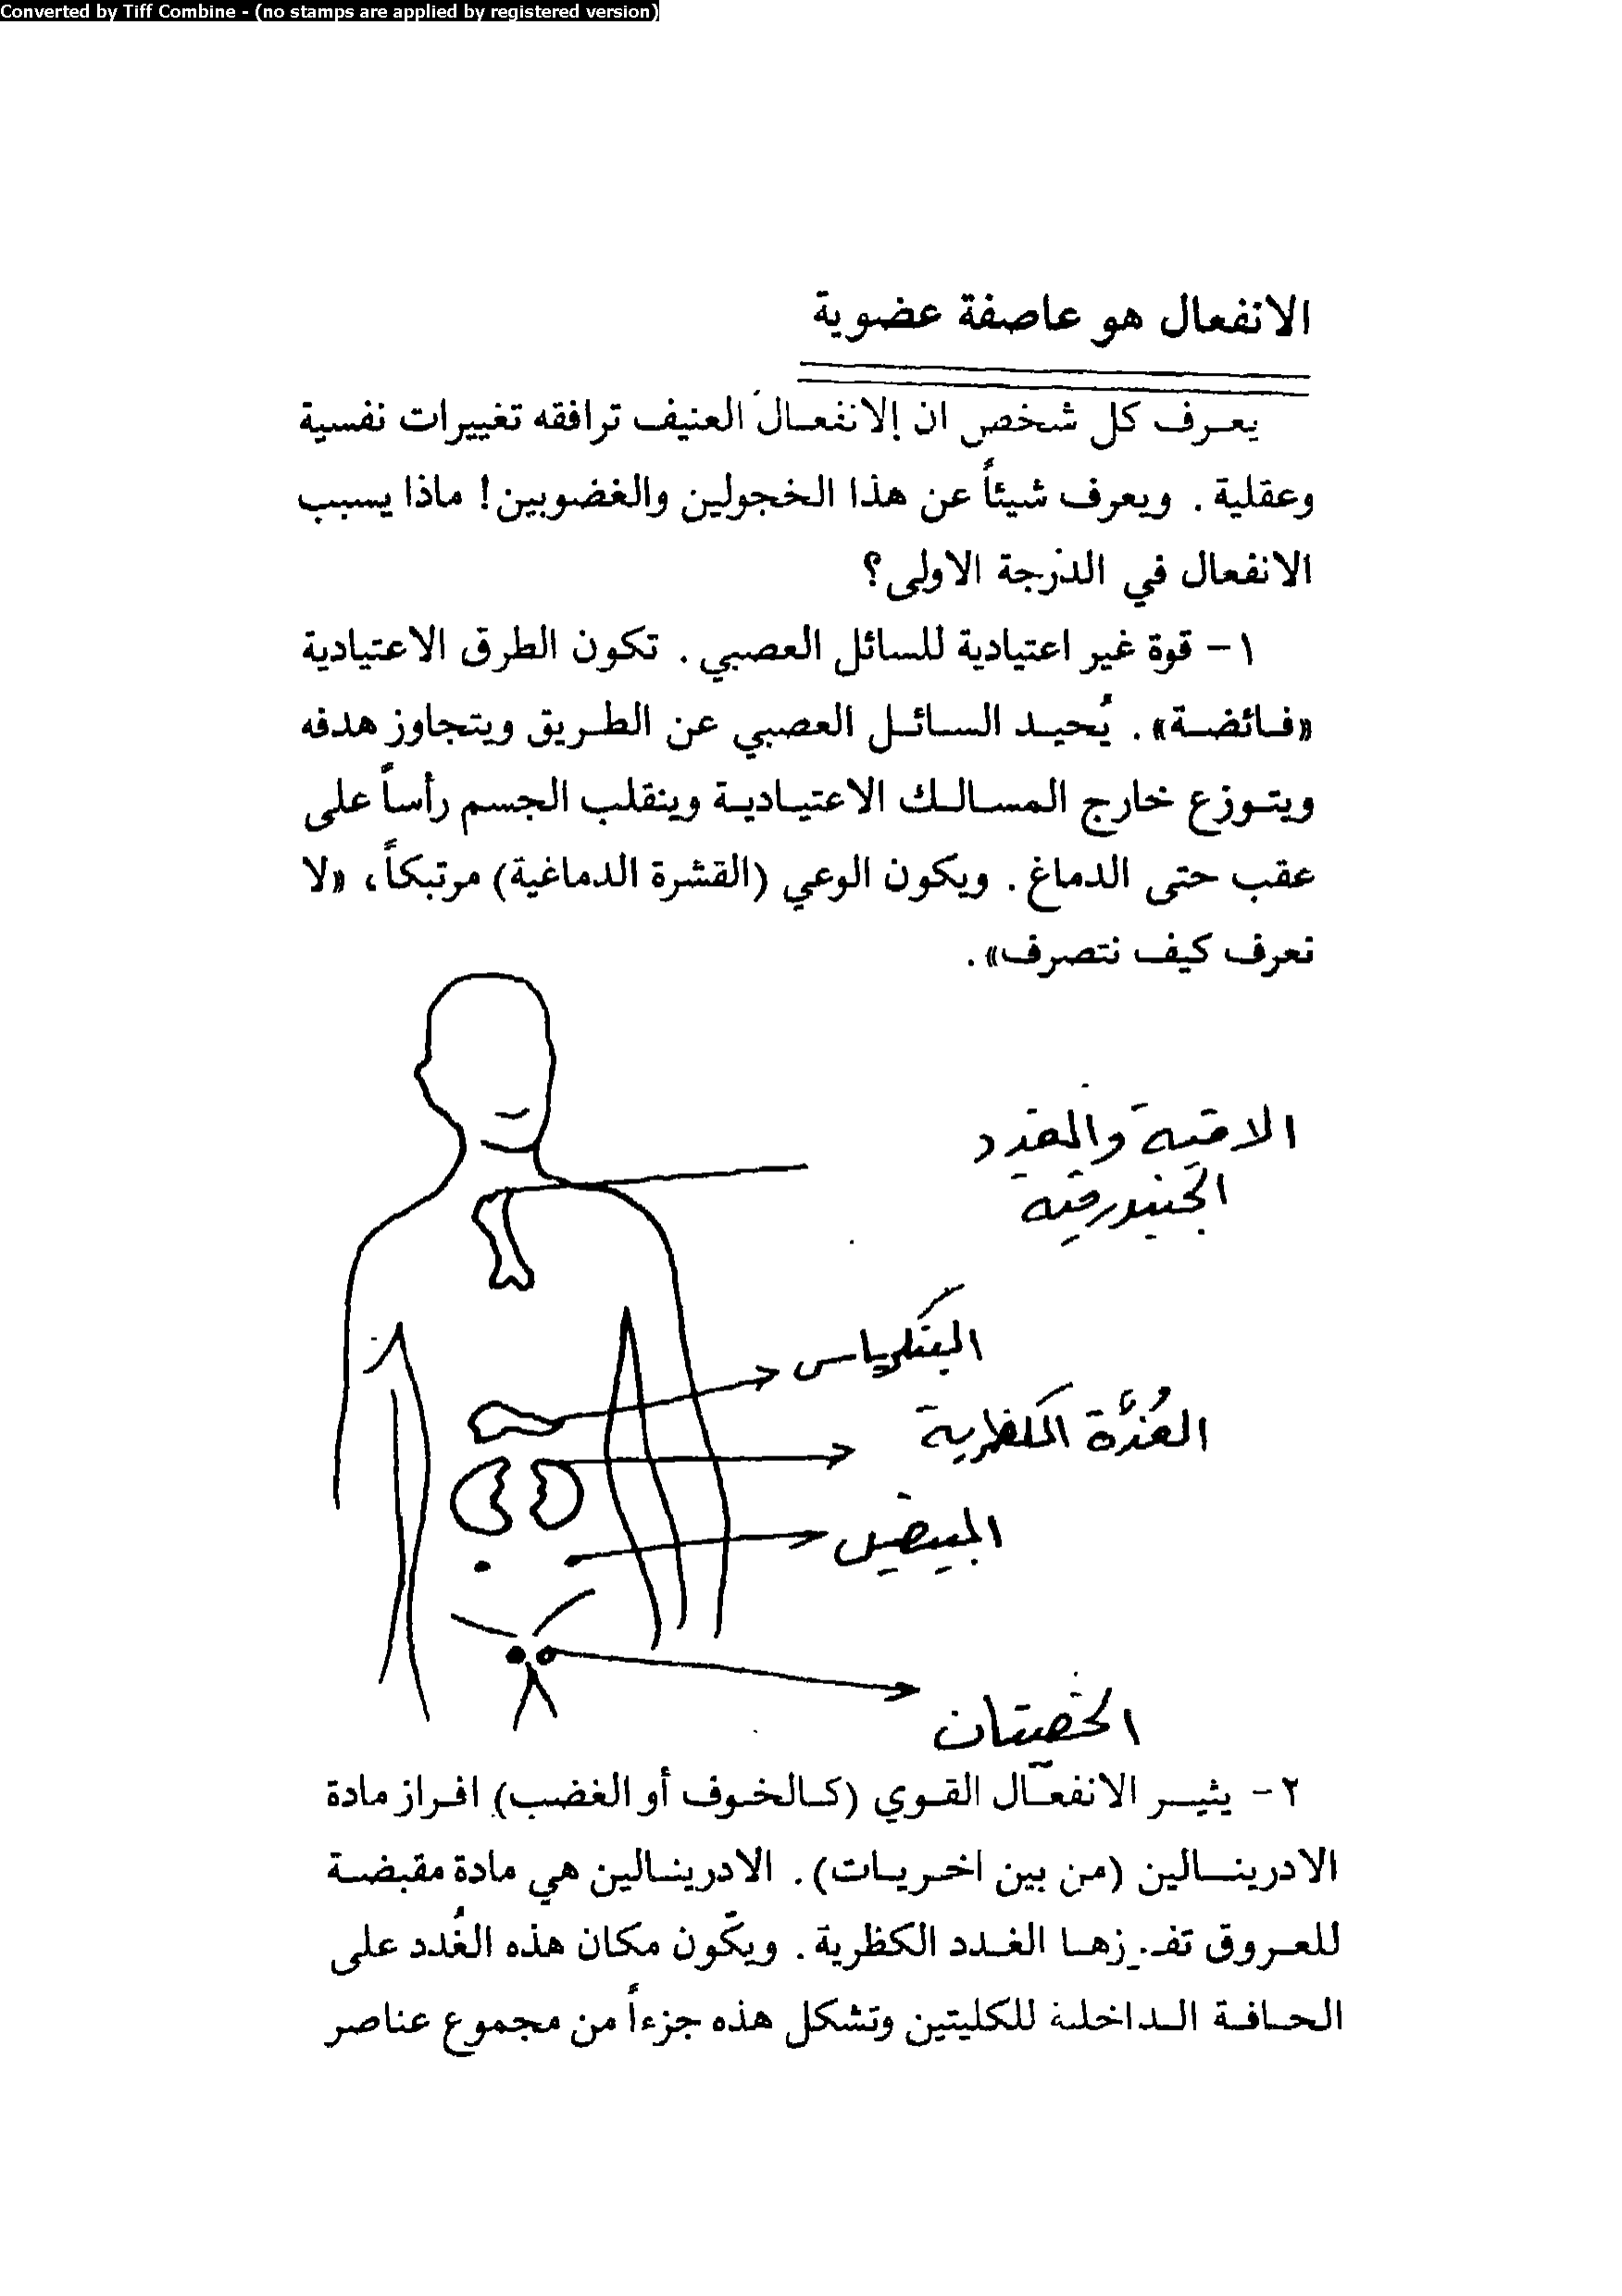 Converted by Tiff Combine - (no stamps are applied by registered version)
الانفعال هو عاصفة عضوية
يعرف كل شخص ان الانفعال العنيف ترافقه تغييرات نفسية
وعقلية. ويعرف شيئاً عن هذا الخجولين والغضوبين! ماذا يسبب
الانفعال في الدرجة الاولى؟
١- قوة غير اعتيادية للسائل العصبي. تكون الطرق الاعتيادية
«فائضة». يُحيد السائل العصبي عن الطريق ويتجاوز هدفه
ويتوزع خارج المسالك الاعتيادية وينقلب الجسم رأساً على
عقب حتى الدماغ. ويكون الوعي (القشرة الدماغية) مرتبكاً، «لا
نعرف كيف نتصرف».
والغدد
البنكرياس
الغُدَّة الكظرية
المبيضين
الخصيتان
٢- يثير الانفعال القوي (كالخوف أو الغضب) افراز مادة
الادرينالين (من بين اخريات). الادرينالين هي مادة مقبضة
للعروق تفرزها الغدد الكظرية. ويكون مكان هذه الغُدد على
الحافة الداخلية للكليتين وتشكل هذه جزءاً من مجموع عناصر